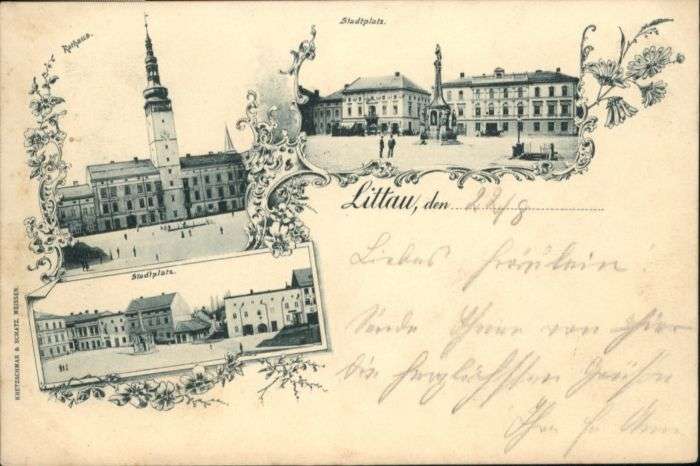 Rathaus.
Stadtplatz.
Littau, den 22/8
Liebes Fräulein!
Sende Ihnen von hier
die herzlichsten Grüsse
Stadtplatz.
KRETZSCHMAR & SCHATZ, MEISSEN.